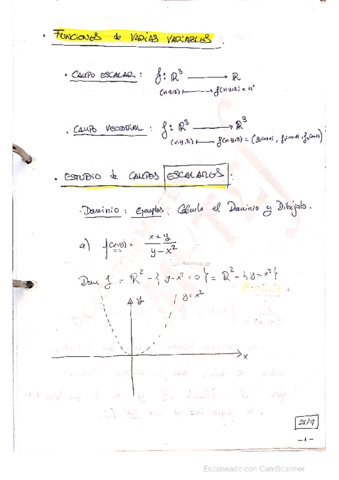 • FUNCIONES de VARIAS VARIABLES.
• CAMPO ESCALAR: f: ℝ³ ⟶ ℝ
(x,y,z) ⟼ f(x,y,z) = nº
• CAMPO VECTORIAL: f: ℝ³ ⟶ ℝ³
(x,y,z) ⟼ f(x,y,z) =
• ESTUDIO de CAMPOS ESCALARES:
Dominio: Ejemplos. Calcula el Dominio y Dibújalo.
a) f(x,y) = x+y / y-x²
Dom f = ℝ² - { y-x² = 0 } = ℝ² - { y = x² }
y
y = x²
x
-1-
Escaneado con CamScanner